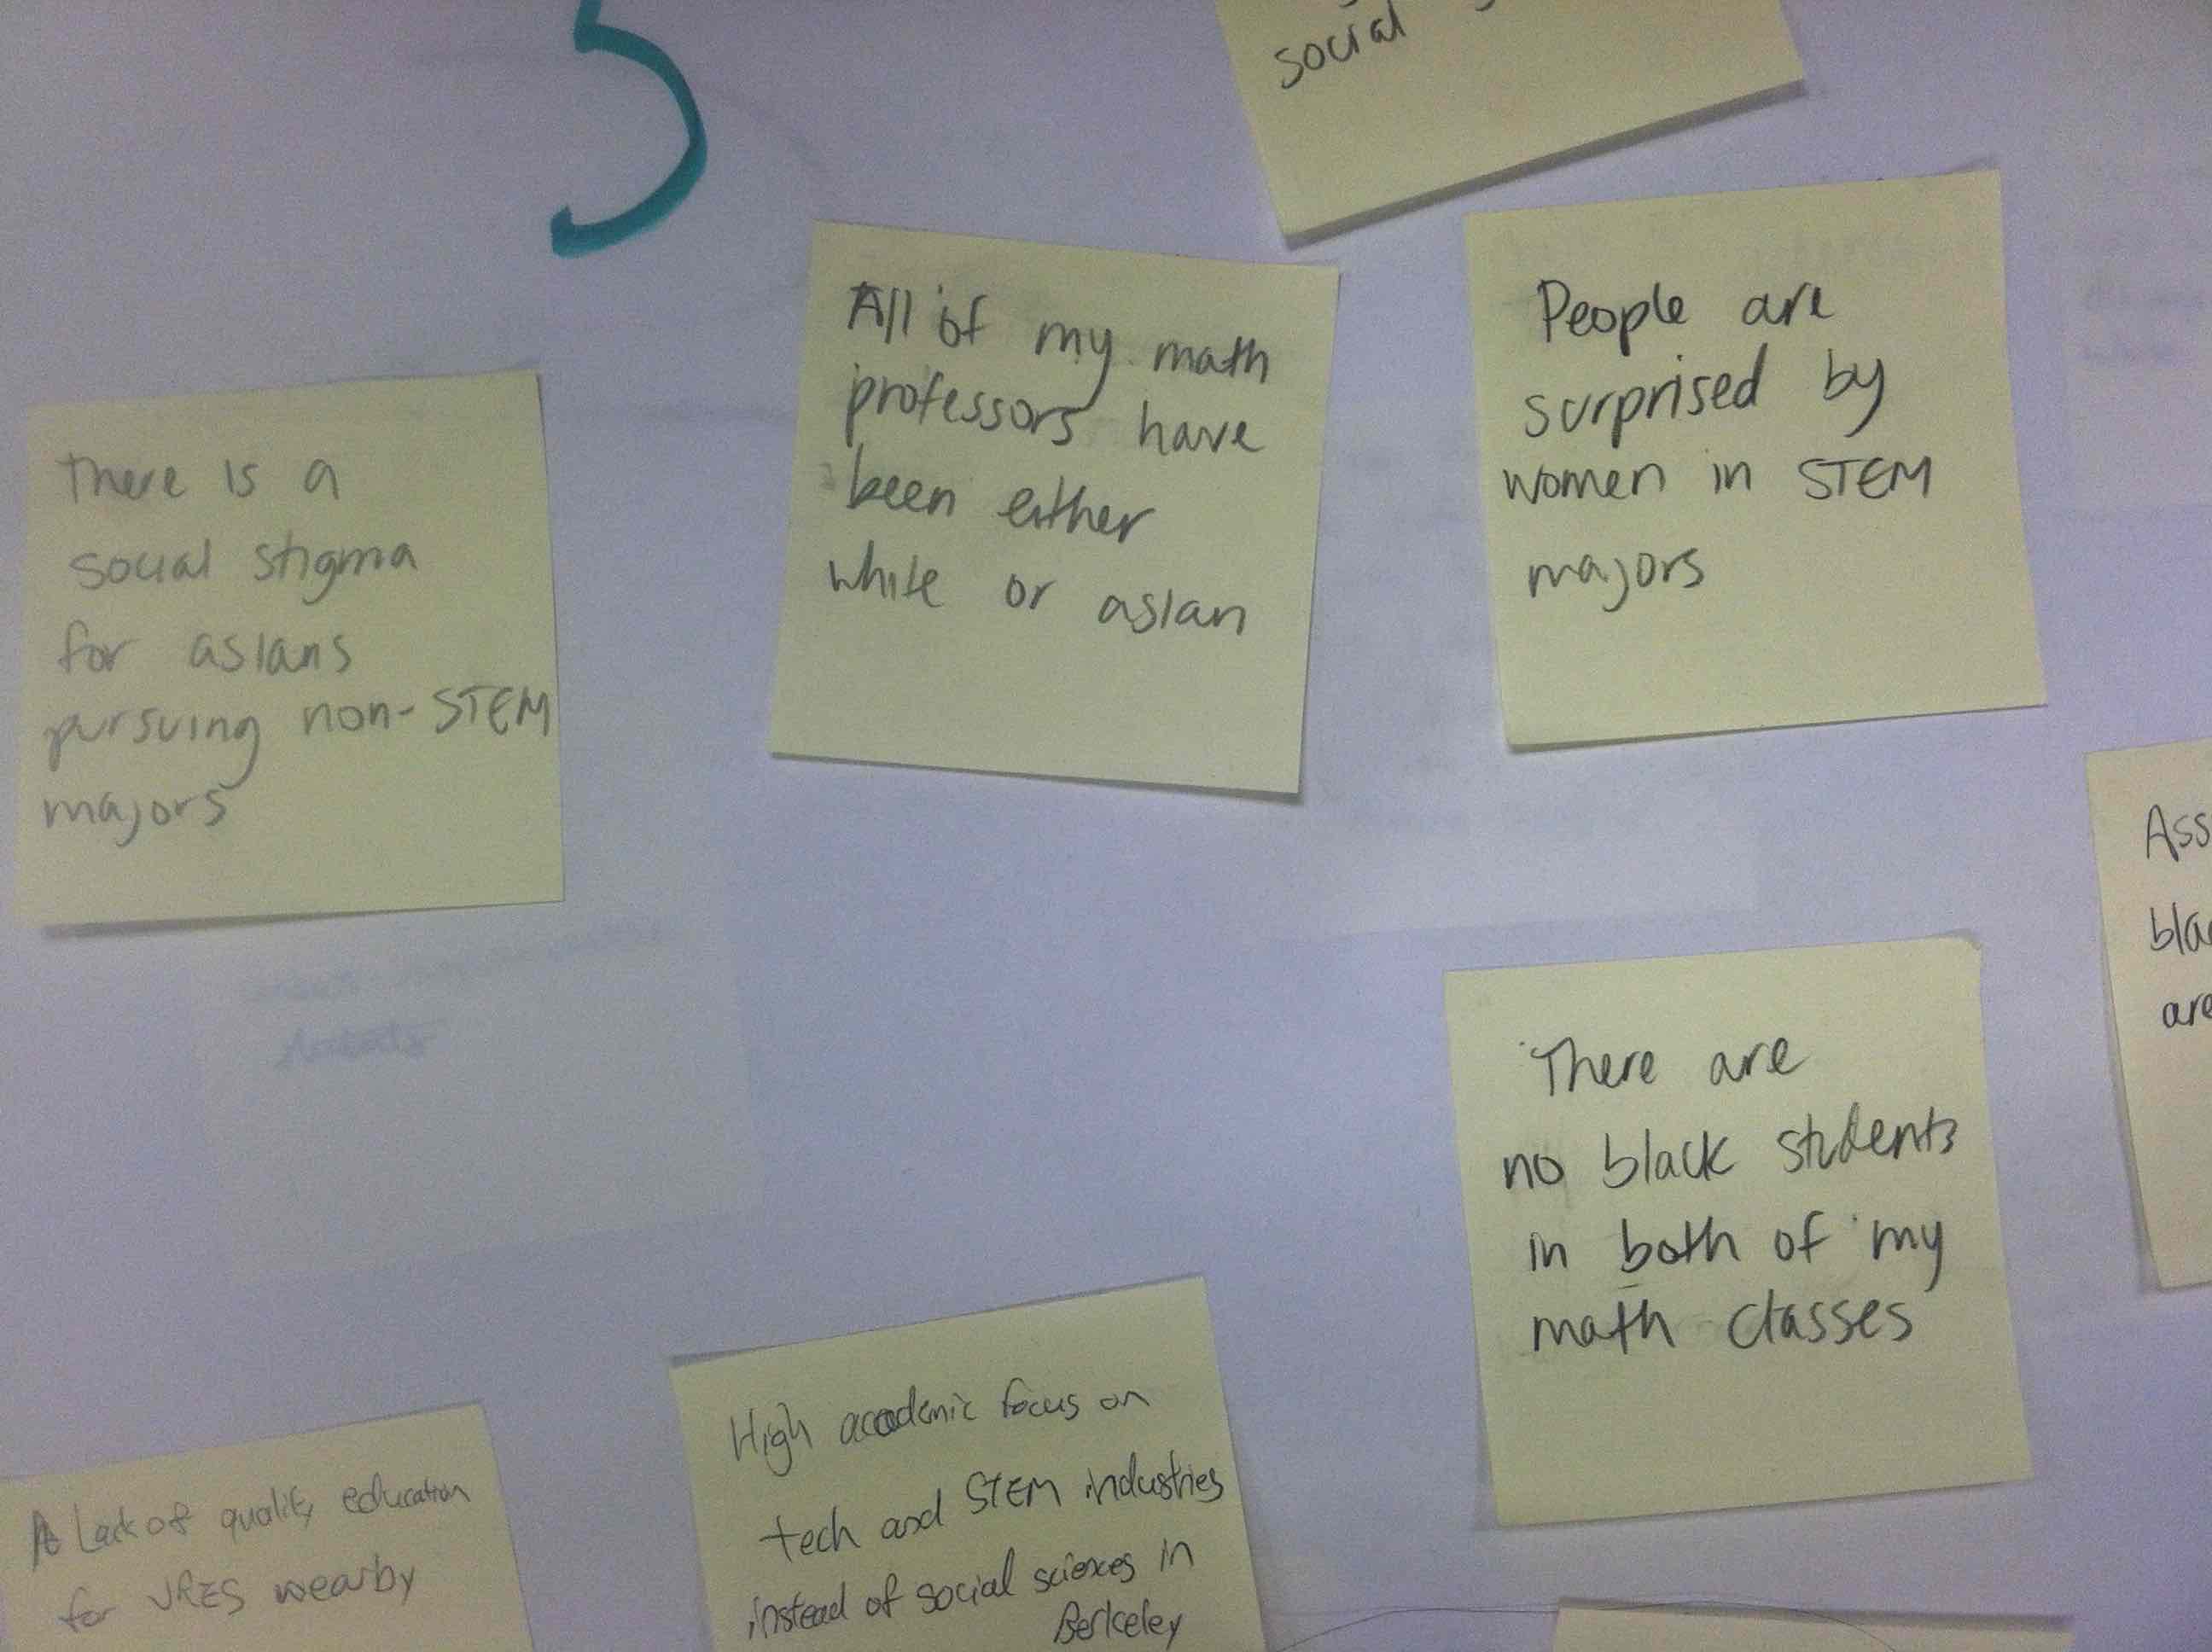 social
All of my math
professors have
been either
white or asian
People are
surprised by
women in STEM
majors
There is a
social stigma
for asians
pursuing non-STEM
majors
Ass
bla
are
There are
no black students
in both of my
math classes
High academic focus on
tech and STEM industries
instead of social sciences in
Berkeley
A Lack of quality education
for nearby